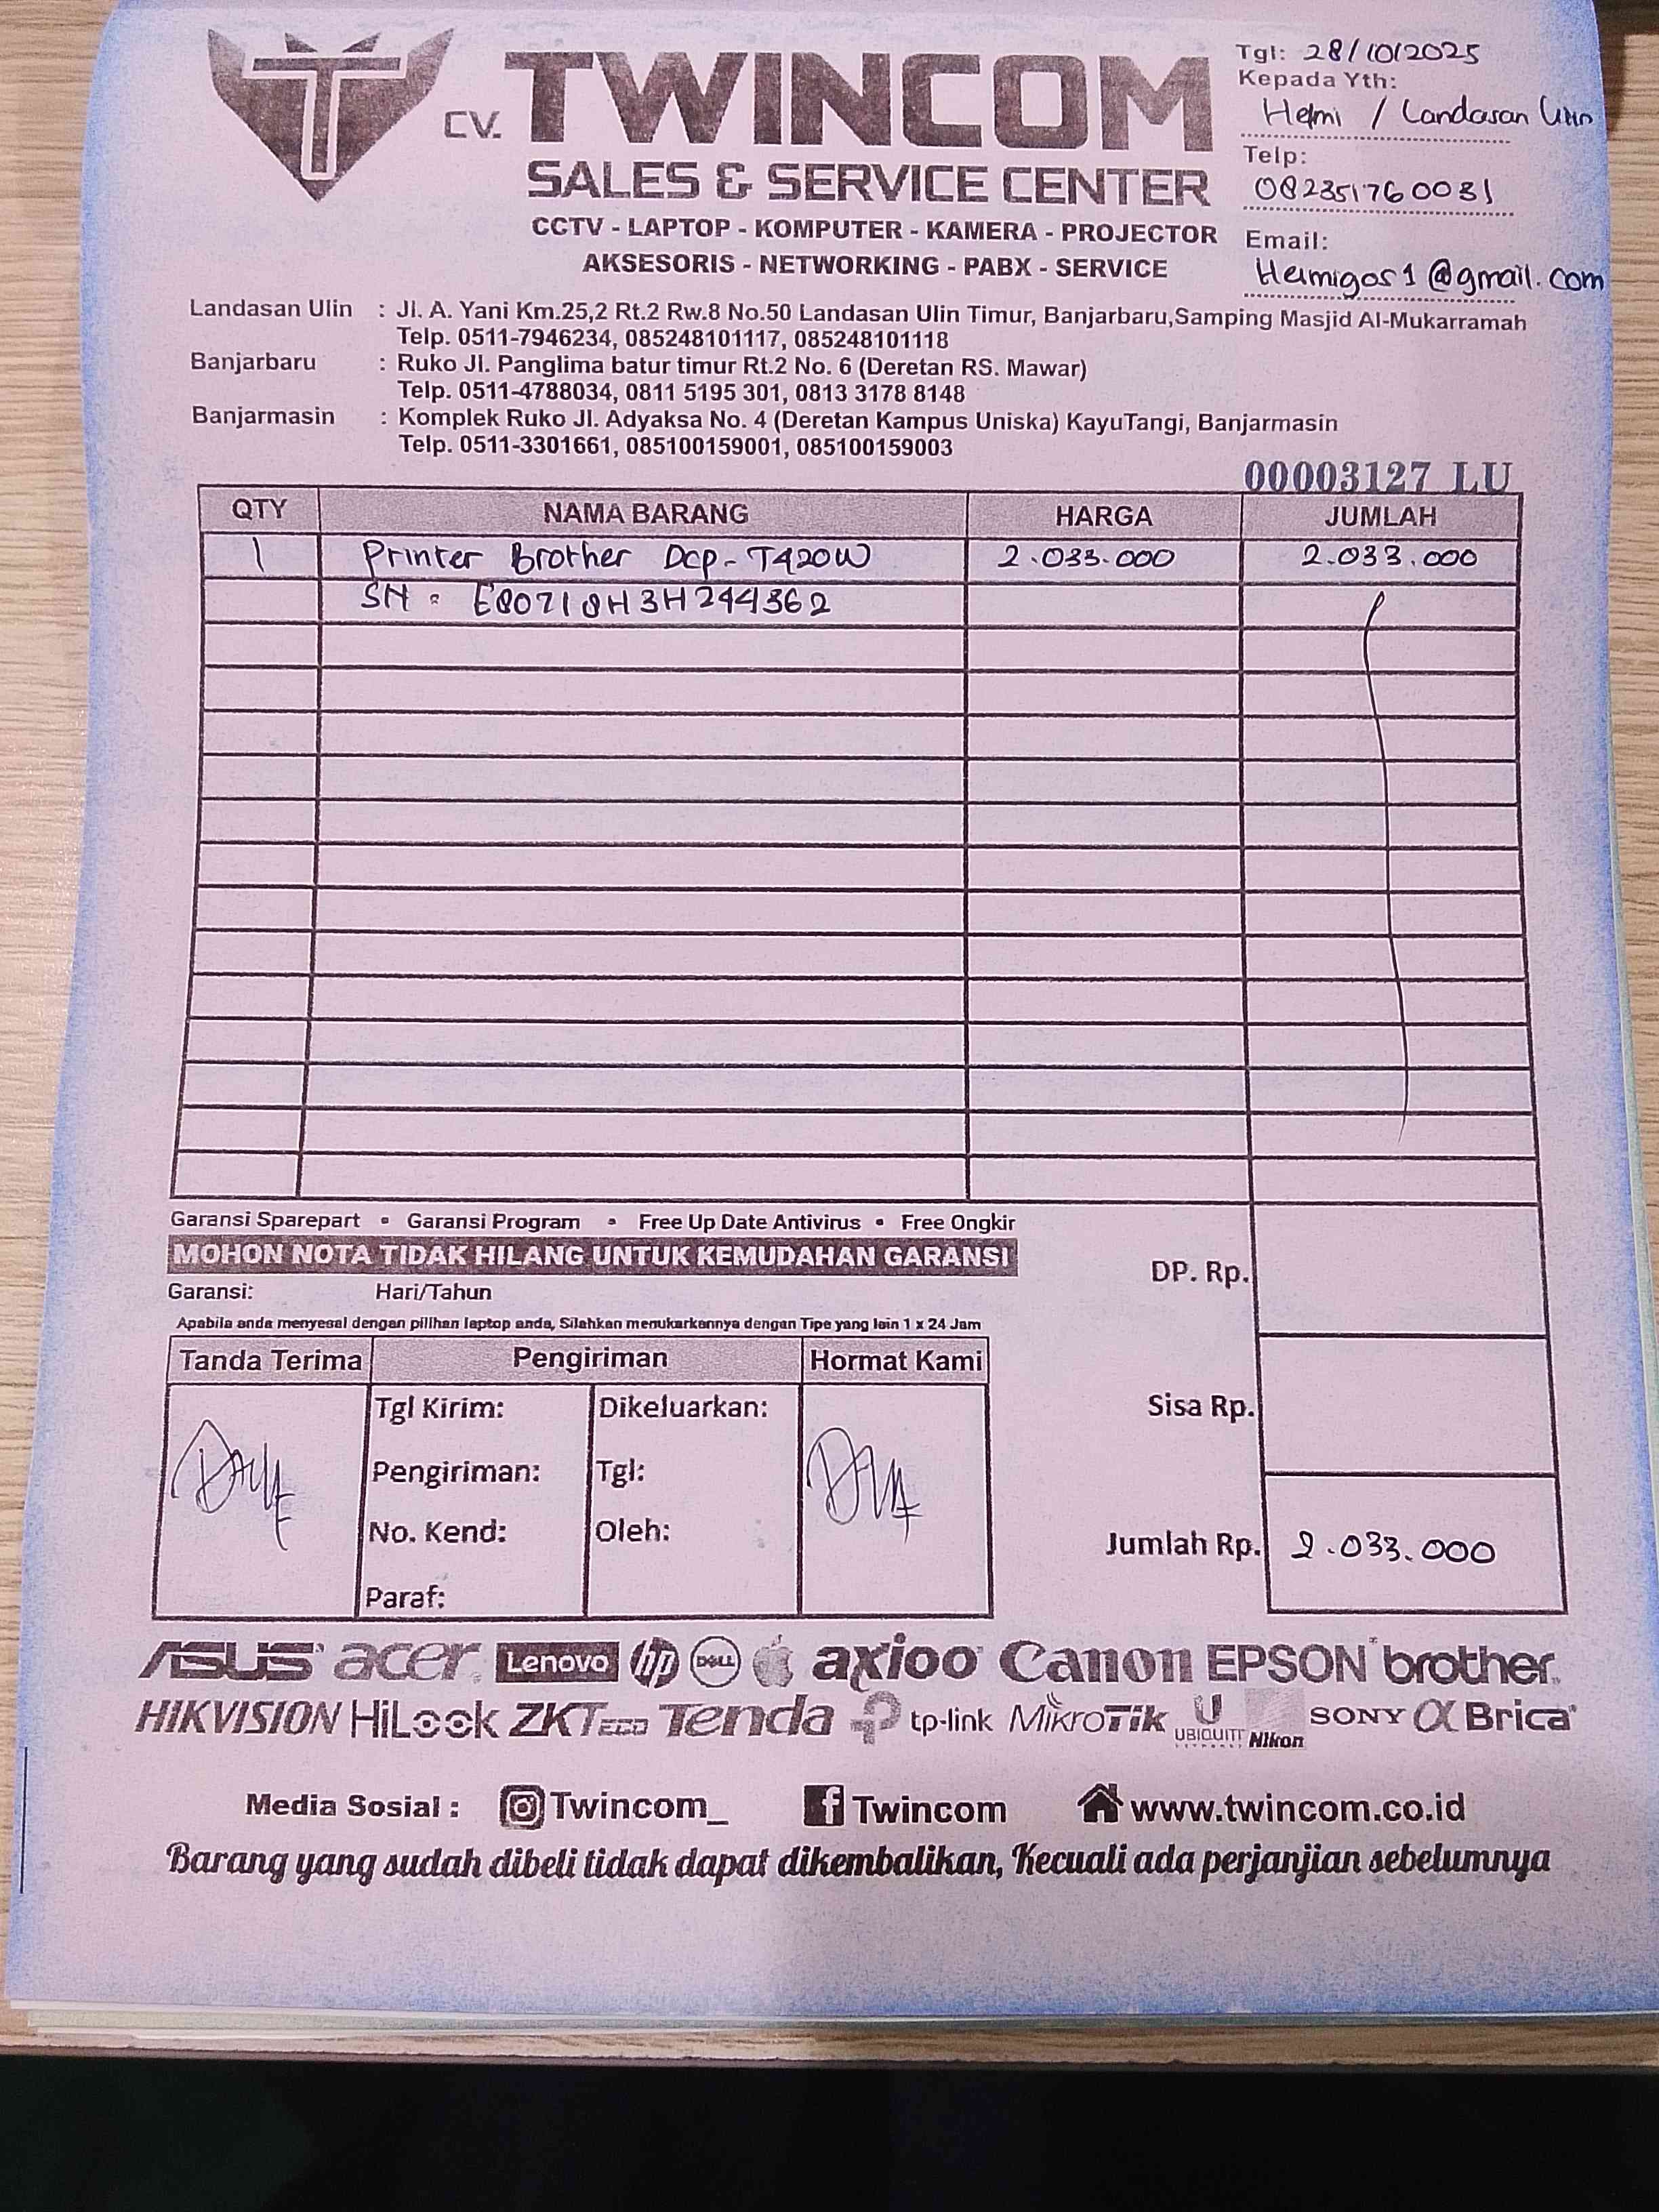 CV. TWINCOM
SALES & SERVICE CENTER
CCTV - LAPTOP - KOMPUTER - KAMERA - PROJECTOR
AKSESORIS - NETWORKING - PABX - SERVICE
Tgl: 28/10/2025
Kepada Yth:
Helmi / Landasan Ulin
Telp:
082351760031
Email:
Helmigos1@gmail.com
Landasan Ulin : Jl. A. Yani Km.25,2 Rt.2 Rw.8 No.50 Landasan Ulin Timur, Banjarbaru,Samping Masjid Al-Mukarramah
Telp. 0511-7946234, 085248101117, 085248101118
Banjarbaru : Ruko Jl. Panglima batur timur Rt.2 No. 6 (Deretan RS. Mawar)
Telp. 0511-4788034, 0811 5195 301, 0813 3178 8148
Banjarmasin : Komplek Ruko Jl. Adyaksa No. 4 (Deretan Kampus Uniska) KayuTangi, Banjarmasin
Telp. 0511-3301661, 085100159001, 085100159003
00003127 LU
QTY NAMA BARANG HARGA JUMLAH
1 Printer Brother Dcp-T420W 2.033.000 2.033.000
SN : E80718H3H244362
Garansi Sparepart • Garansi Program • Free Up Date Antivirus • Free Ongkir
MOHON NOTA TIDAK HILANG UNTUK KEMUDAHAN GARANSI
Garansi: Hari/Tahun
Apabila anda menyesal dengan pilihan laptop anda, Silahkan menukarkannya dengan Tipe yang lain 1 x 24 Jam
DP. Rp.
Tanda Terima Pengiriman Hormat Kami
Tgl Kirim: Dikeluarkan:
Sisa Rp.
Pengiriman: Tgl:
No. Kend: Oleh:
Jumlah Rp. 2.033.000
Paraf:
ASUS acer Lenovo hp DELL axioo Canon EPSON brother
HIKVISION HiLook ZKTeco Tenda tp-link MikroTik UBIQUITI Nikon SONY α Brica
Media Sosial : Twincom_ Twincom www.twincom.co.id
Barang yang sudah dibeli tidak dapat dikembalikan, Kecuali ada perjanjian sebelumnya